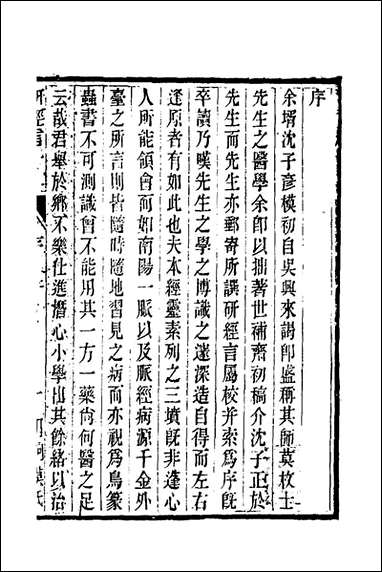 序
余壻沈子彥模初自吳興來謁卽盛稱其師莫枚士
先生之醫學余卽以拙著世補齋初稿介沈子正於
先生而先生亦郵寄所譔研經言屬校并索爲序旣
卒讀乃嘆先生之學之博識之遠深造自得而左右
逢原者有如此也夫本經靈素列之三墳旣非逢心
人所能領會而如南陽一脈以及脈經病源千金外
臺之所言則皆隨時隨地習見之病而亦視爲鳥篆
蟲書不可測識曾不能用其一方一藥尚何醫之足
云哉君舉於鄉不樂仕進潛心小學出其餘緒以治
研經言
序